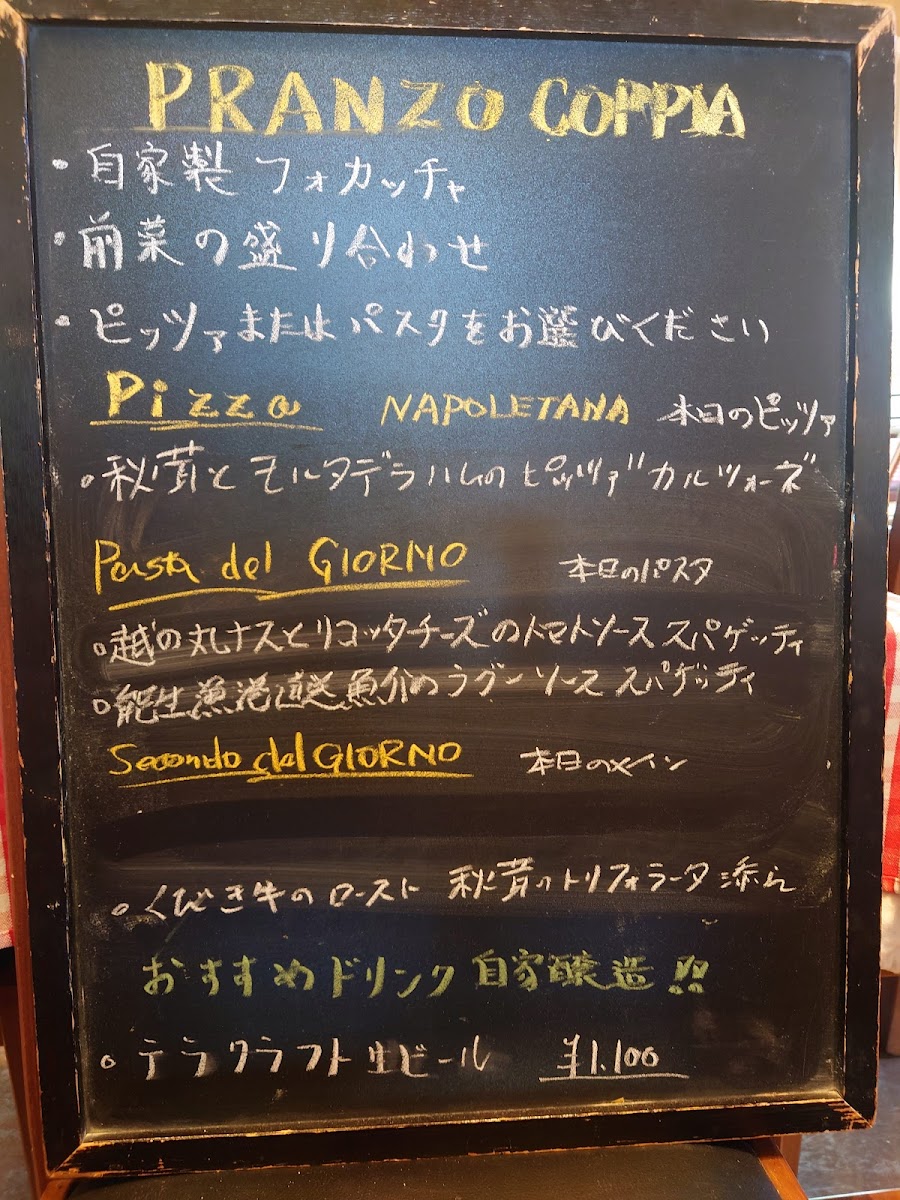 PRANZO COPPIA
・自家製フォカッチャ
・前菜の盛り合わせ
・ピッツァまたはパスタをお選びください
Pizza NAPOLETANA 本日のピッツァ
。秋茸とモルタデラハムのピッツァ"カルツォーネ"
Pasta del GIORNO 本日のパスタ
。越の丸ナスとリコッタチーズのトマトソーススパゲッティ
。能生漁港直送魚介のラグーソーススパゲッティ
Secondo del GIORNO 本日のメイン
。くびき牛のロースト 秋茸のトリフォラータ添え
おすすめドリンク 自家醸造!!
。テラクラフト生ビール ¥1.100